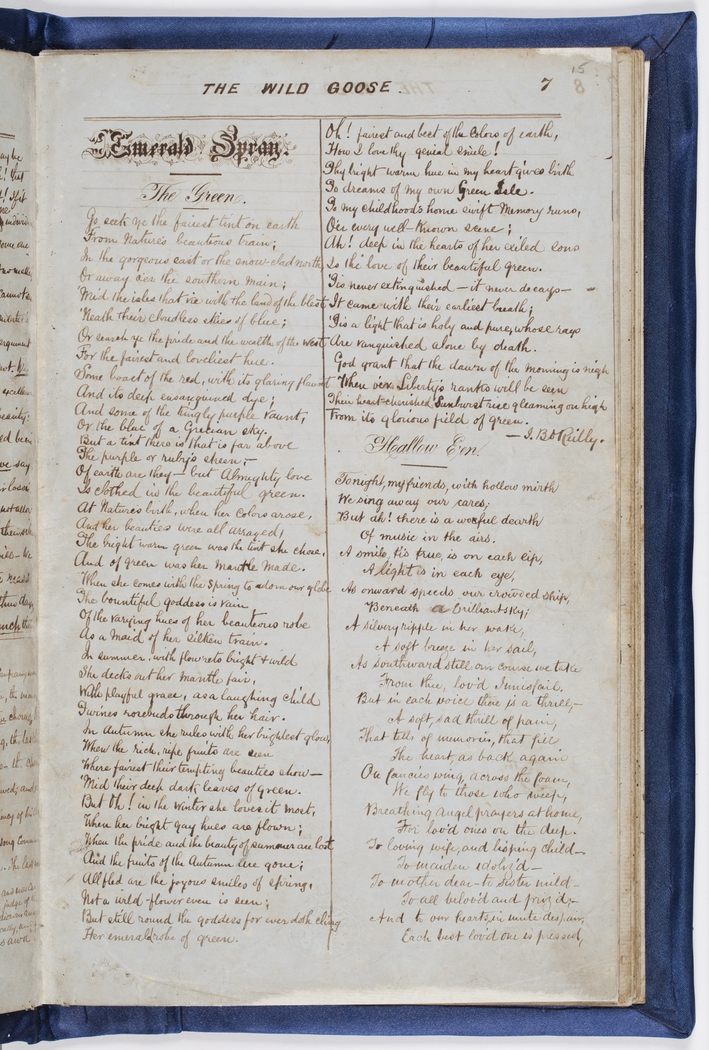 THE WILD GOOSE.
7
15
8
Emerald Spray.
The Green.
Go seek ye the fairest tint on earth
From Nature's beauteous train;
In the gorgeous east or the snow-clad north,
Or away o'er the southern main;
'Mid the isles that vie with the land of the blest
'Neath their cloudless skies of blue;
Or search ye the pride and the wealth of the West
For the fairest and loveliest hue.
Some boast of the red, with its glaring flaunt
And its deep ensanguined dye;
And some of the kingly purple vaunt,
Or the blue of a Grecian sky.
But a tint there is that is far above
The purple or ruby's sheen;—
Of earth are they—but Almighty love
Is clothed in the beautiful green.
At Nature's birth, when her colors arose,
And her beauties were all arrayed,
The bright warm green was the tint she chose,
And of green was her mantle made.
When she comes with the Spring to adorn our globe
The bountiful goddess is vain
Of the varying hues of her beauteous robe
As a maid of her silken train.
In summer, with flow'rets bright & wild
She decks out her mantle fair,
With playful grace, as a laughing child
Twines rosebuds through her hair.
In Autumn she rules with her brightest glow,
When the rich, ripe fruits are seen
Where fairest their tempting beauties show—
'Mid their deep dark leaves of green.
But Oh! in the Winter she loves it most,
When her bright gay hues are flown;
When the pride and the beauty of summer are lost
And the fruits of the Autumn are gone;
All fled are the joyous smiles of spring,
Not a wild-flower even is seen;
But still round the goddess for ever doth cling
Her emerald robe of green.
Oh! fairest and best of the colors of earth,
How I love thy genial smile!
Thy bright warm hue in my heart gives birth
To dreams of my own Green Isle.
To my childhood's home swift Memory runs,
O'er every well-known scene;
Ah! deep in the hearts of her exiled sons
Is the love of their beautiful green.
'Tis never extinguished—it never decays—
It came with their earliest breath;
'Tis a light that is holy and pure, whose rays
Are vanquished alone by death.
God grant that the dawn of the morning is nigh
When o'er Liberty's ranks will be seen
Their heart-cherished Sunburst rise gleaming on high
From its glorious field of green.
— J. B. O'Reilly.
Hallow E'en.
Tonight, my friends, with hollow mirth
We sing away our cares;
But ah! there is a woeful dearth
Of music in the airs.
A smile, tis true, is on each lip,
A light is in each eye,
As onward speeds our crowded ship,
Beneath a brilliant sky;
A silvery ripple in her wake,
A soft breeze in her sail,
As southward still our course we take
From thee, lov'd Innisfail.
But in each voice there is a thrill,—
A soft, sad thrill of pain,
That tells of memories, that fill
The heart, as back again
On fancies wing, across the foam,
We fly to those who weep,
Breathing angel prayers at home,
For lov'd ones on the deep.
To loving wife, and lisping child—
To maiden idoliz'd—
To mother dear—to Sister mild—
To all belov'd and priz'd;—
And to our hearts, in mute despair,
Each best lov'd one is pressed,